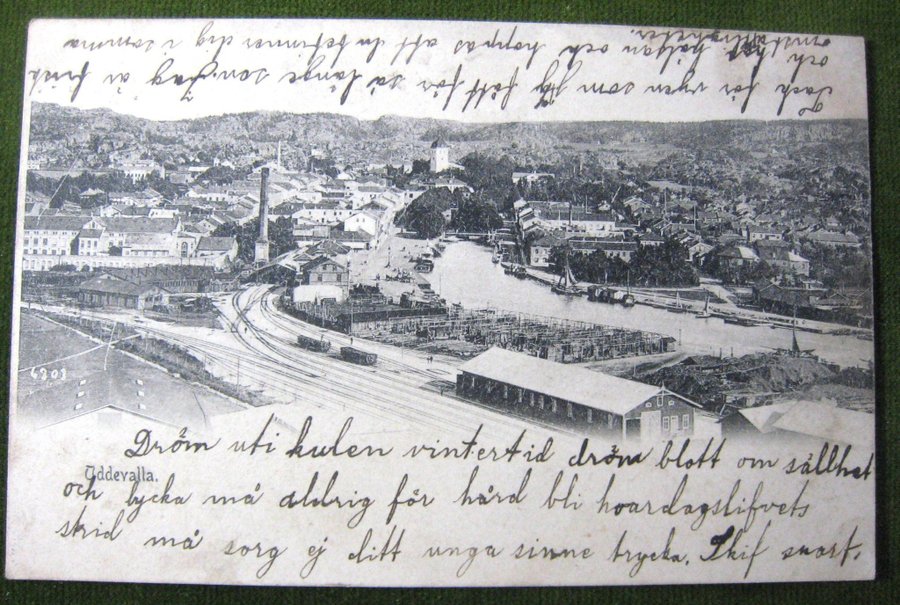 Tack för vyen som jag fått för så länge sen. Jag är frisk
och hälsan och hoppas att du befinner dig i samma
omständigheter.
6303
Uddevalla.
Dröm uti kulen vintertid dröm blott om sällhet
och lycka må aldrig för hård bli hvardagslifvets
strid må sorg ej ditt unga sinne trycka. Skif snart.